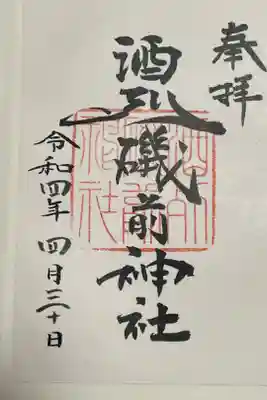 奉拝
酒列磯前神社
令和四年 四月三十日